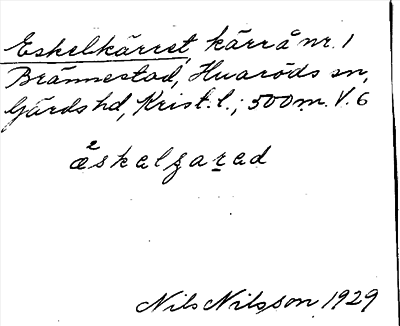 Eskelkärret, kärr å nr. 1
Brännestad, Huaröds sn,
Gärds hd, Krist. l.; 500 m. V. 6
Nils Nilsson 1929